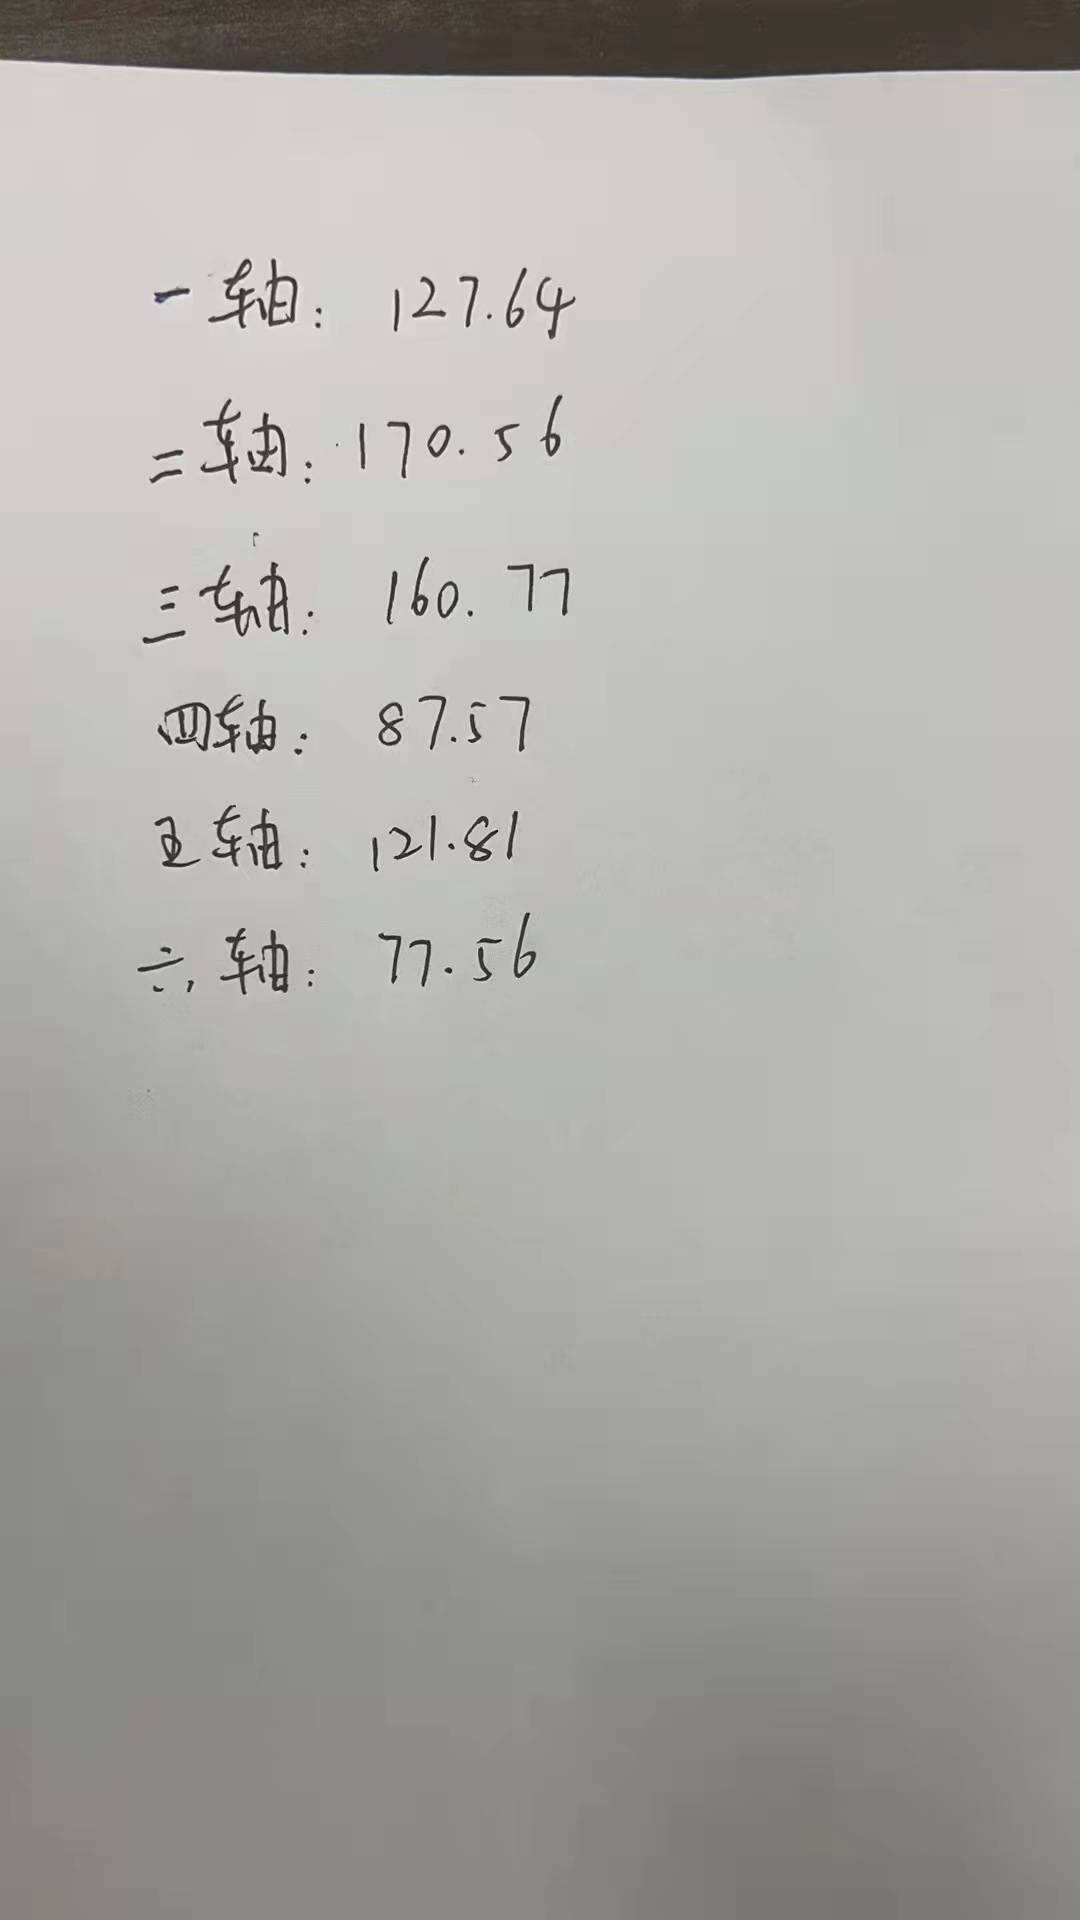 一轴: 127.64
二轴: 170.56
三轴: 160.77
四轴: 87.57
五轴: 121.81
六轴: 77.56